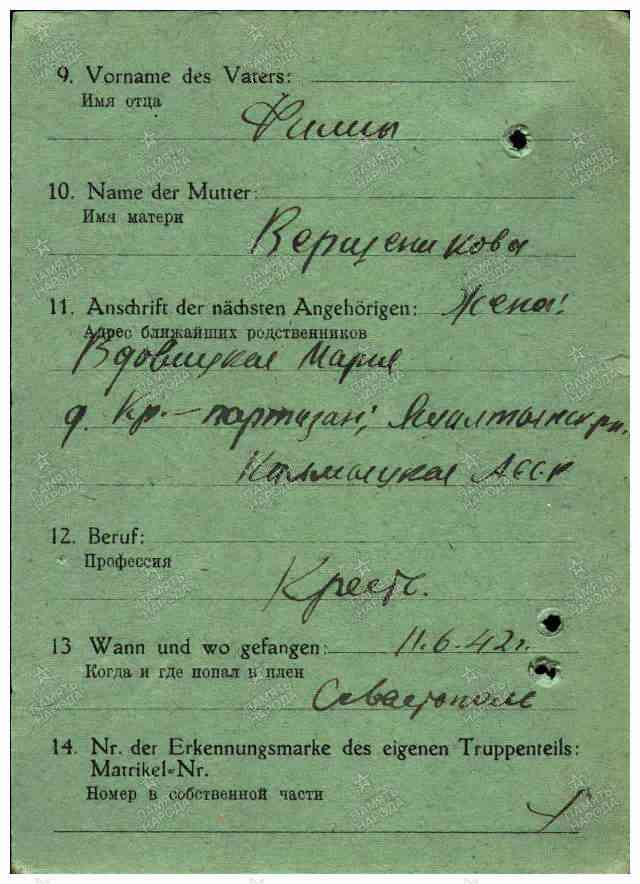 9. Vorname des Vaters:
Имя отца
Филип
10. Name der Mutter:
Имя матери
Верщеникова
11. Anschrift der nächsten Angehörigen: Жена:
Адрес ближайших родственников
Вдовицкая Мария
д. Кр.-партизан; Яшалтынск рн.
Калмыцкая АССР
12. Beruf:
Профессия
Крест.
13 Wann und wo gefangen: 11.6.42 г.
Когда и где попал в плен
Севастополь
14. Nr. der Erkennungsmarke des eigenen Truppenteils:
Matrikel-Nr.
Номер в собственной части
ПАМЯТЬ НАРОДА